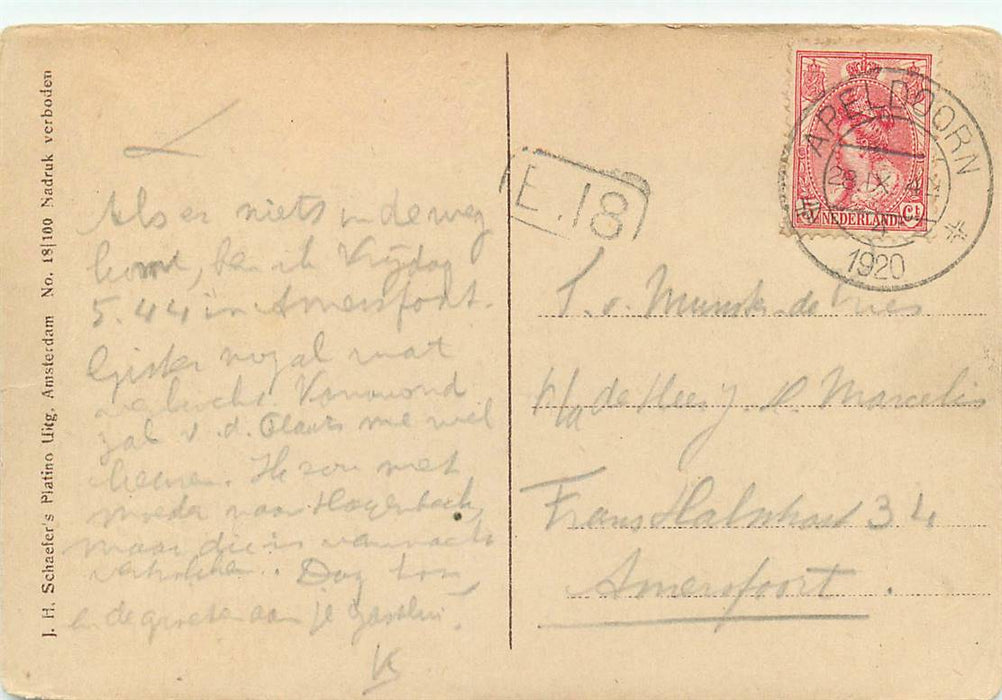 J. H. Schaefer's Platino Uitg. Amsterdam No. 18|100 Nadruk verboden
Als er niets in de weg
komt, ben ik Vrijdag
5.44 in Amersfoort.
Gister nog al wat
Vanavond
zal v. d. Plaats me wel
Ik zou met
moeder naar
maar die is vannacht
vertrokken. Dag
en de groeten aan je
E. 18
APELDOORN
4
1920
NEDERLAND
Ct
T. v. Munster de Vries
p/a de Heer J. H. Marcelis
Frans Halsstraat 34
Amersfoort.